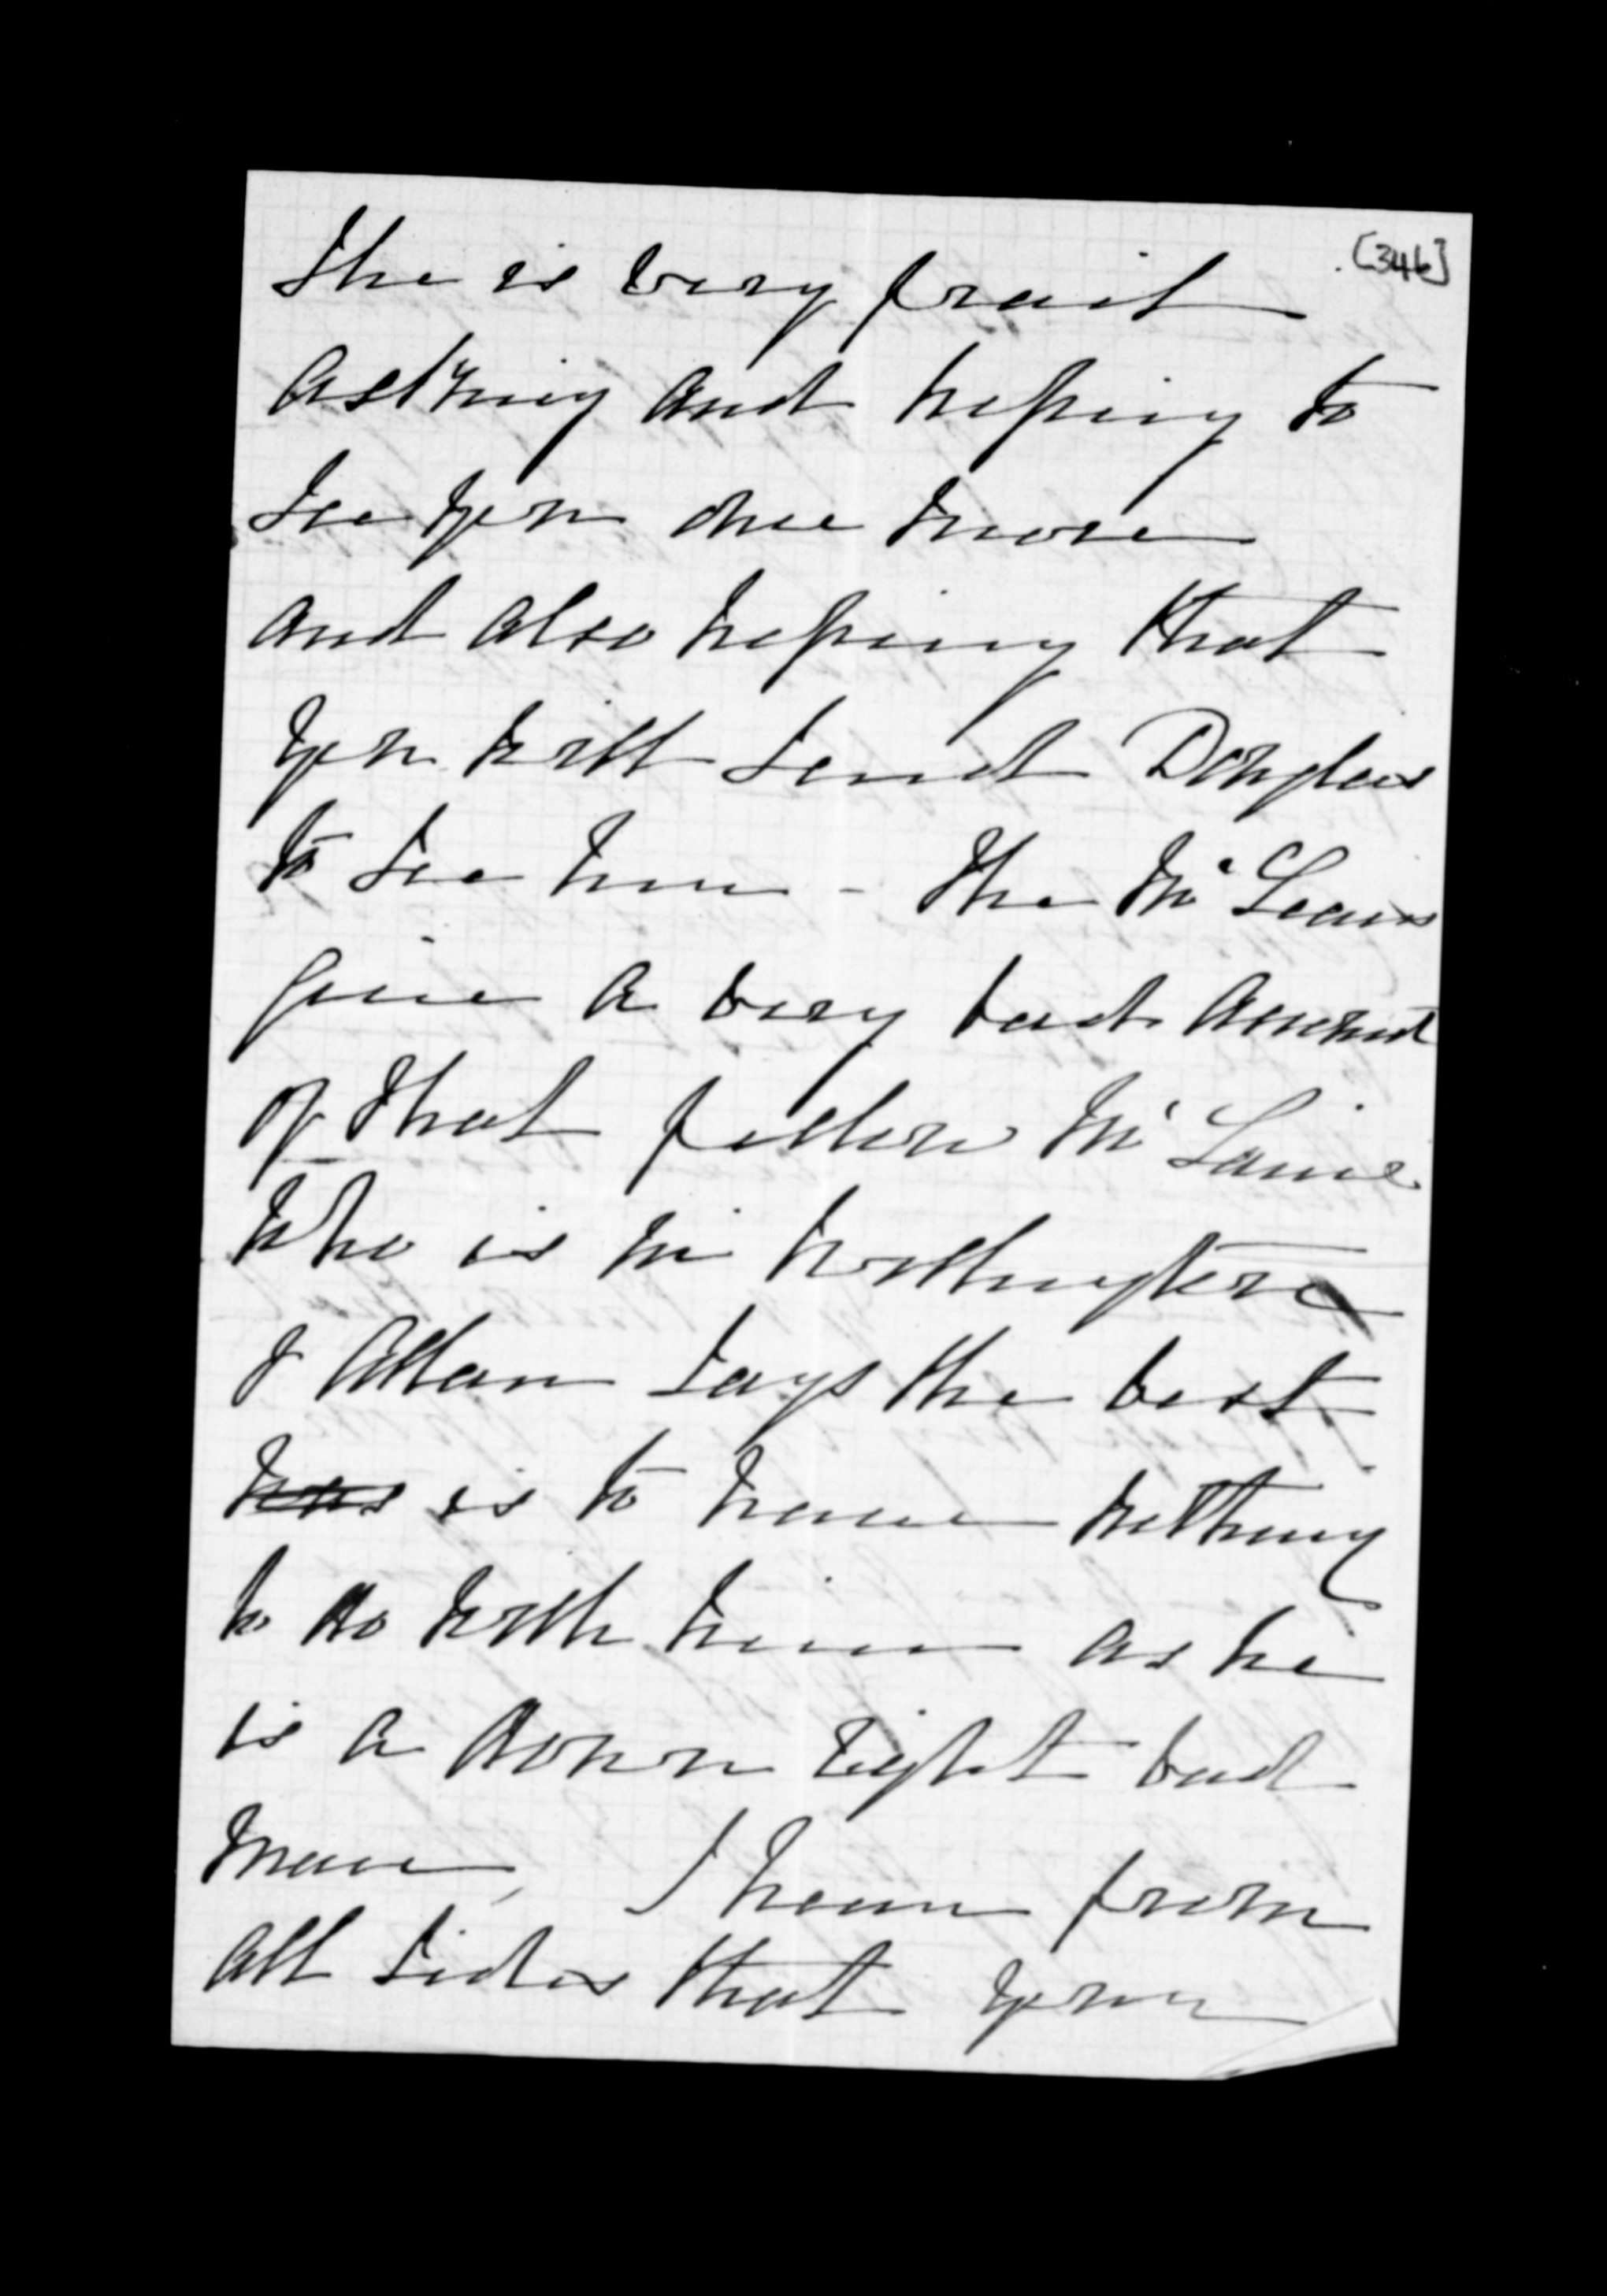 [346]
She is very frail
asking and hoping to
see you once more
and also hoping that
you will send Douglas
to see him - The McLeans
give a very bad account
of that fellow McLaine
who is in Wellington
& Allan says the best
was is to have nothing
to do with him as he
is a down right bad
man, I hear from
all sides that your